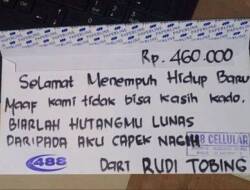 Rp. 460.000
Selamat Menempuh Hidup Baru
Maaf kami tidak bisa kasih kado.
BIARLAH HUTANGMU LUNAS
DARIPADA AKU CAPEK NAGIH
88 CELLULAR
488
DARI RUDI TOBING